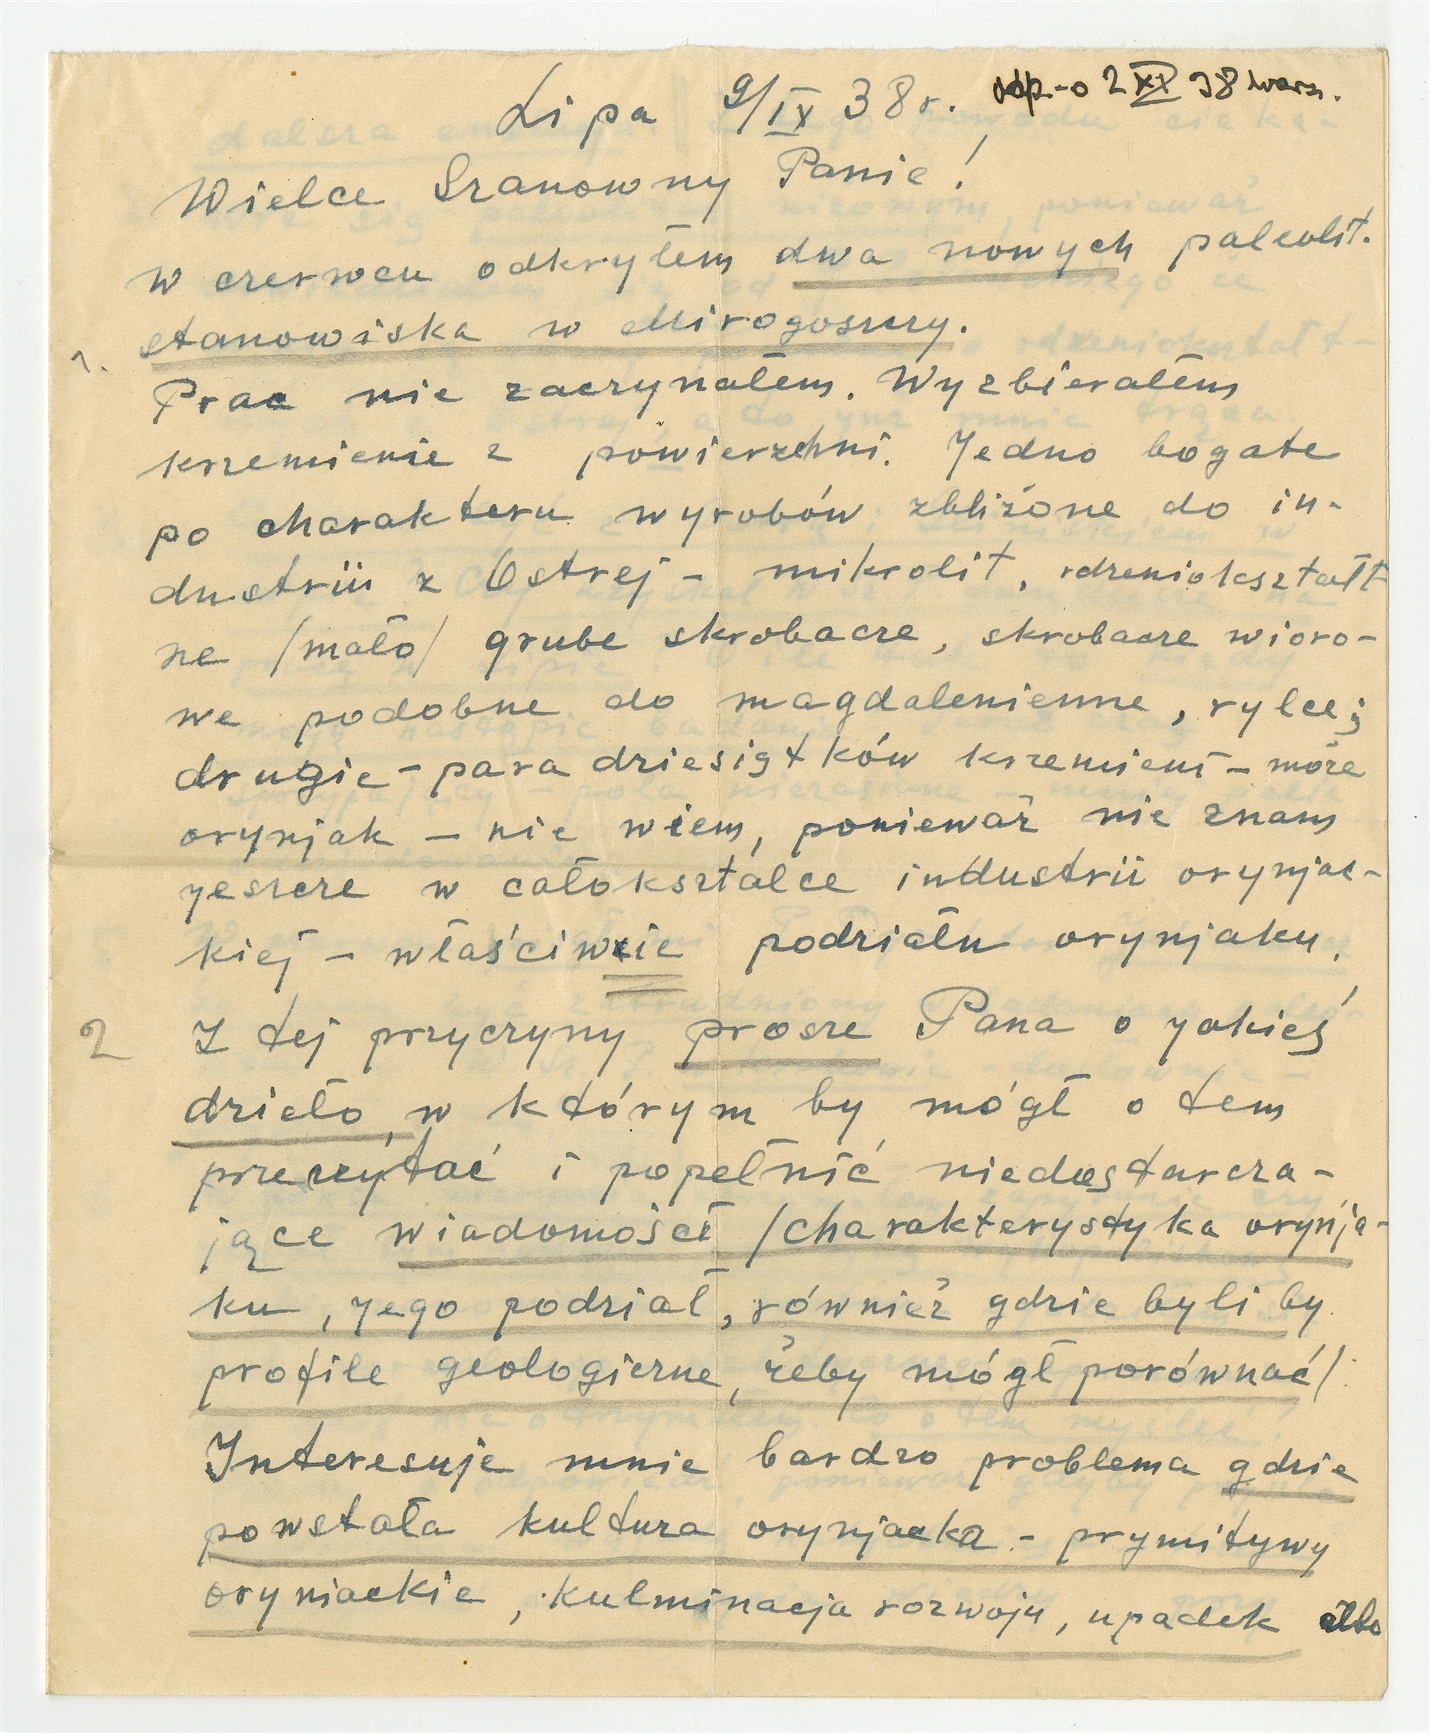 Lipa 9/IX 38 r. odp.-o 2 XI 38 warsz.
Wielce Szanowny Panie!
W czerwcu odkryłem dwa nowych paleolit.
1. stanowiska w Mirogoszczy.
Prac nie zaczynałem. Wyzbierałem
krzemienie z powierzchni. Jedno bogate
po charakteru wyrobów zbliżone do in-
dustrii z Ostrej - mikrolit, rdzeniokształt-
ne /mało/ grube skrobacze, skrobacze wióro-
we podobne do magdalenienne, rylce;
drugie - para dziesiątków krzemieni - może
orynjak - nie wiem, ponieważ nie znam
jeszcze w całokształce industrii orynjac-
kiej - właściwie podziału orynjaku.
2 Z tej przyczyny prosze Pana o jakieś
dzieło, w którym by mógł o tem
przeczytać i popełnić niedostarcza-
jące wiadomości /charakterystyka orynja-
ku, jego podział, również gdzie byli by
profile geologiczne, żeby mógł porównać/.
Interesuje mnie bardzo problema gdzie
powstała kultura orynjacka - prymitywy
oryniackie, kulminacja rozwoju, upadek albo